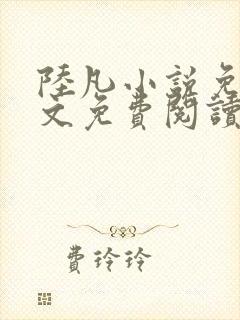 陸凡小說免
文免費閱讀
費玲玲